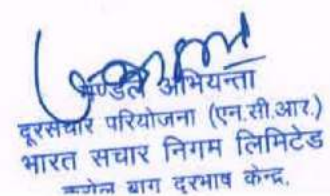 मण्डल अभियन्ता
दूरसंचार परियोजना (एन.सी.आर.)
भारत संचार निगम लिमिटेड
करोल बाग दूरभाष केन्द्र,